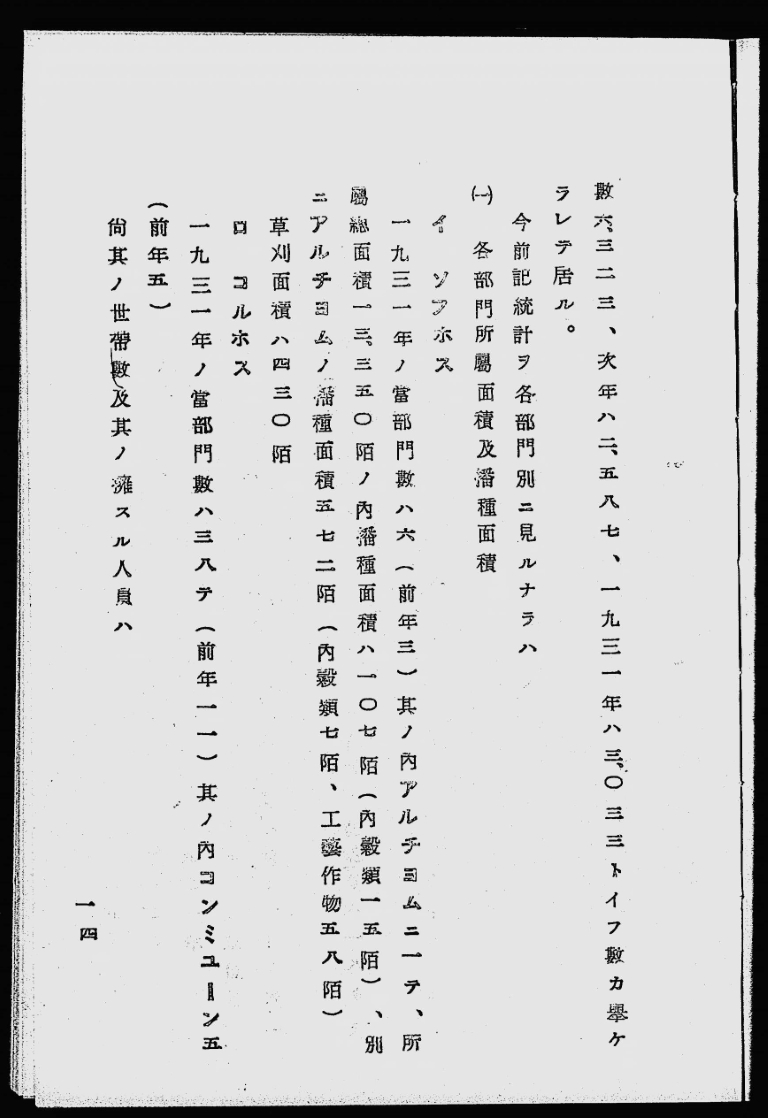 數六、三二三、次年ハ二、五八七、一九三一年ハ三、〇三三トイフ數カ擧ケ
ラレテ居ル。
今前記統計ヲ各部門別ニ見ルナラハ
㈠ 各部門所屬面積及播種面積
イ ソフホス
一九三一年ノ當部門數ハ六(前年三)其ノ內アルチヨムニ一テ、所
屬總面積一三、三五〇陌ノ內播種面積ハ一〇七陌(內穀類一五陌)、別
ニアルチヨムノ播種面積五七二陌(內穀類七陌、工藝作物五八陌)
草刈面積ハ四三〇陌
ロ コルホス
一九三一年ノ當部門數ハ三八テ(前年一一)其ノ內コンミユーン五
(前年五)
尙其ノ世帶數及其ノ擁スル人員ハ
一四